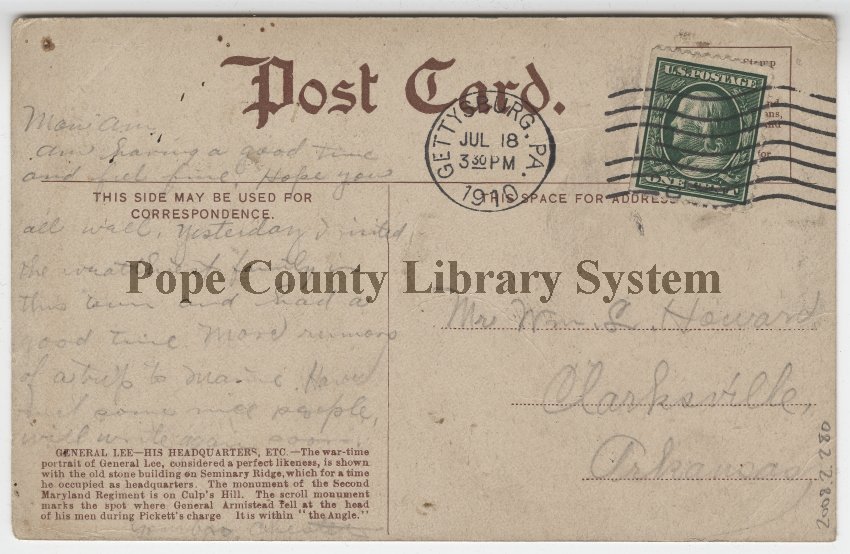 Post Card.
U.S. POSTAGE
GETTYSBURG, PA.
JUL 18
3 30 PM
1910
am having a good time
and feel fine, Hope you
THIS SIDE MAY BE USED FOR
CORRESPONDENCE.
THIS SPACE FOR ADDRESS
all well, Yesterday I visited
the family
this town and had a
good time. More rumors
of a trip to Maine. Have
met some nice people,
will write again soon.
Pope County Library System
Wm. S. Howard
Clarksville,
Arkansas
GENERAL LEE—HIS HEADQUARTERS, ETC.—The war-time
portrait of General Lee, considered a perfect likeness, is shown
with the old stone building on Seminary Ridge, which for a time
he occupied as headquarters. The monument of the Second
Maryland Regiment is on Culp's Hill. The scroll monument
marks the spot where General Armistead fell at the head
of his men during Pickett's charge It is within "the Angle."